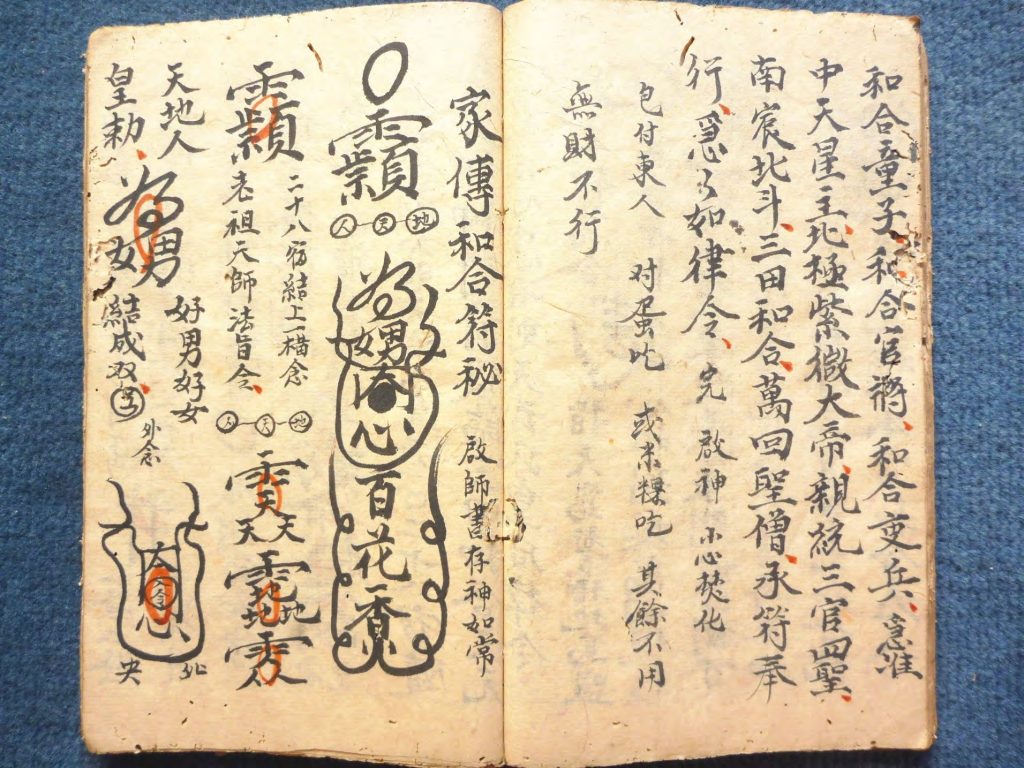 和合童子、和合官將、和合吏兵、急准
中天星主北極紫微大帝、親統三官四聖、
南宸北斗、三田和合、萬回聖僧、承符奉
行、急急如律令、完 啟神 小心焚化
包付東人 对蛋吃 或米粿吃 其餘不用
無財不行
家傳和合符秘 啟師書存神如常
人 天 地
男 心 百花香
二十八宿結上一橫念
老祖天師法旨令、
人 天 地
天 天天
地 地地
人人
天地人
皇勅、 男女 好男好女
結成双 外念
合 心
央 北